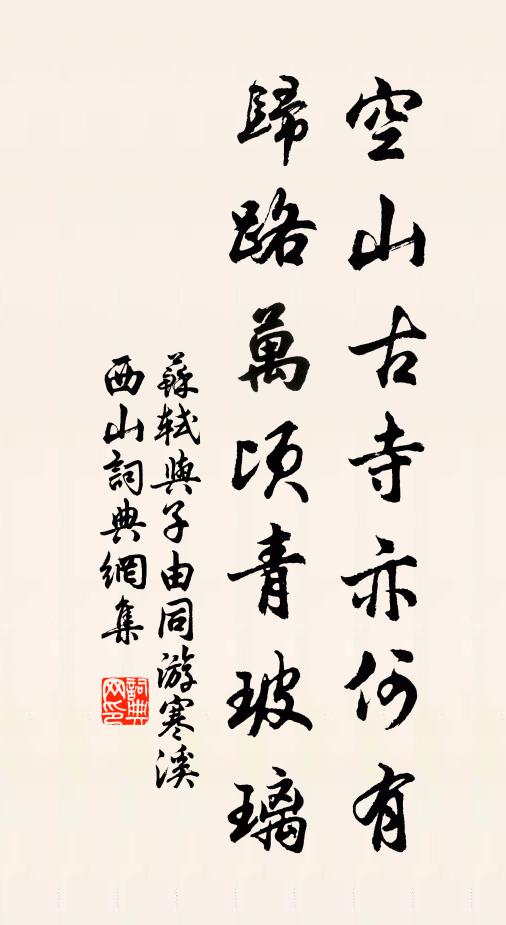 空山古寺亦何有
歸路萬頃青玻璃
蘇軾與子由同游寒溪
西山詞典網集
詞典
网印